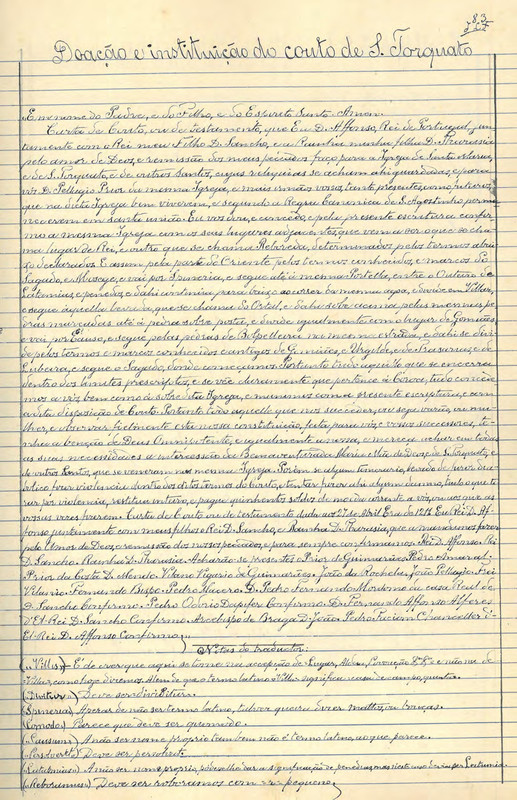 83
Doação e instituição do couto de S. Torquato
Em nome do Padre, e do Filho, e do Espirito Santo. Amen.
Carta de Couto, ou de Testamento, que Eu D. Affonso, Rei de Portugal, jun-
tamente com o Rei meu Filho D. Sancho, e a Rainha minha filha D. Tharasia
pelo amor de Deos, e remissão dos meus peccados faço para a Igreja de Santa Maria,
e de S. Torquato, e de outros Santos, cujas reliquias se acham ahi guardadas, e para
vós D. Pellagio Prior da mesma Igreja, e mais irmãos vossos, tanto presentes, como futuros,
que na dita Igreja bem viverem, e segundo a Regra Canonica de S. Agostinho perma-
necerem em santa união. Eu vos dou, e concedo, e pela presente escritura confir-
mo a mesma Igreja com os seus lugares adjacentes, que vem a ser o que se cha-
ma lugar de Rei, e outro que se chama Reboreda, determinados pelos termos abai-
xo declarados. E assim pela parte do Oriente pelos termos conhecidos, e marcos do
Sagado, e e vai por e segue até á mesma Portella, entre o Outeiro de
e penedos, e dahi continúa para baixo ao correr da mesma agoa, e divide em Villar,
e segue aquella que se chama do e dahi sobe acima pelas mesmas pe-
dras marcadas até á pedra sobre posta, e divide igualmente com o lugar de Gominhães,
e vai por Causo, e segue pelas pedras de na mesma estrada, e dahi se divi-
de pelos termos e marcos conhecidos e antigos de e e de e de
e segue o Sagado, donde começamos. Portanto tudo aquillo que se encerra
dentro dos limites prescriptos, e se vê claramente que pertence á Corôa, tudo concede-
mos a vós bem como á sobre dita Igreja, e munimos com a presente escriptura, e com
a dita disposição de Couto. Portanto todo aquelle que nos succeder, ou seja varão, ou mu-
lher, e observar fielmente esta nossa constituição, feita para vós, e vossos successores, te-
nha a benção de Deus Omnipotente, e igualmente a nossa, e mereça valer em todas
as suas necessidades a intercessão da Bemaventurada Maria Mãe de Deos, de S. Torquato, e
de outros Santos, que se veneram na mesma Igreja. Porém se algum temerario, levado de furor dia-
bolico fizer violencia dentro dos ditos termos do Couto, e tentar fazer ahi algum damno, tudo o que ti-
rar por violencia, restitua inteiro, e pague quinhentos soldos de moeda corrente a vós, ou aos que as
vossas vezes fizerem. Carta de Couto ou de testamento dada aos 27 de Abril Era de 1211. Eu Rei D. Af-
fonso juntamente com meus filhos o Rei D. Sancho, e Rainha D. Tharasia, que a mandamos fazer
pelo Amor de Deos, e remissão dos nossos peccados, e para sempre confirmamos. Rei D. Affonso. Rei
D. Sancho. Rainha D. Tharasia. Acharão-se presentes o Prior de Guimarães Pedro Amaral.
Prior da Costa D. Mendo. Vigario de Guimarães. João da Rochella. João Pellagio. Frei
Fernando Bispo. Pedro D. Pedro Fernando Mordomo da casa Real de
D. Sancho confirmo. Pedro Dapifer Confirmo. D. Fernando Affonso Alferes
D'El-Rei D. Sancho Confirmo. Arcebispo de Braga D. João. Pedro Chanceller d'-
El-Rei D. Affonso Confirmo.
Notas do traductor.
(„Villis„) É de crer que aqui se tome na accepção de Lugar, Aldea, Povoação &ª &ª e não na de
Villas, como hoje dizemos. Alem de que o termo latino = Villa significa casa de campo, quinta.
(„ „) Deve ser dividitur.
( ) Apezar de não ser termo latino, talvez queira dizer mattos, ou
( ) Parece que deve ser queimado.
(„Causum„) A não ser nome proprio tambem não é termo latino, ao que parece.
( ) Deve ser
( ) A não ser nome proprio, póde se lhe dar a significação de penedias, mas neste caso devia ser
( ) Deve ser roboramus com = r = pequeno.